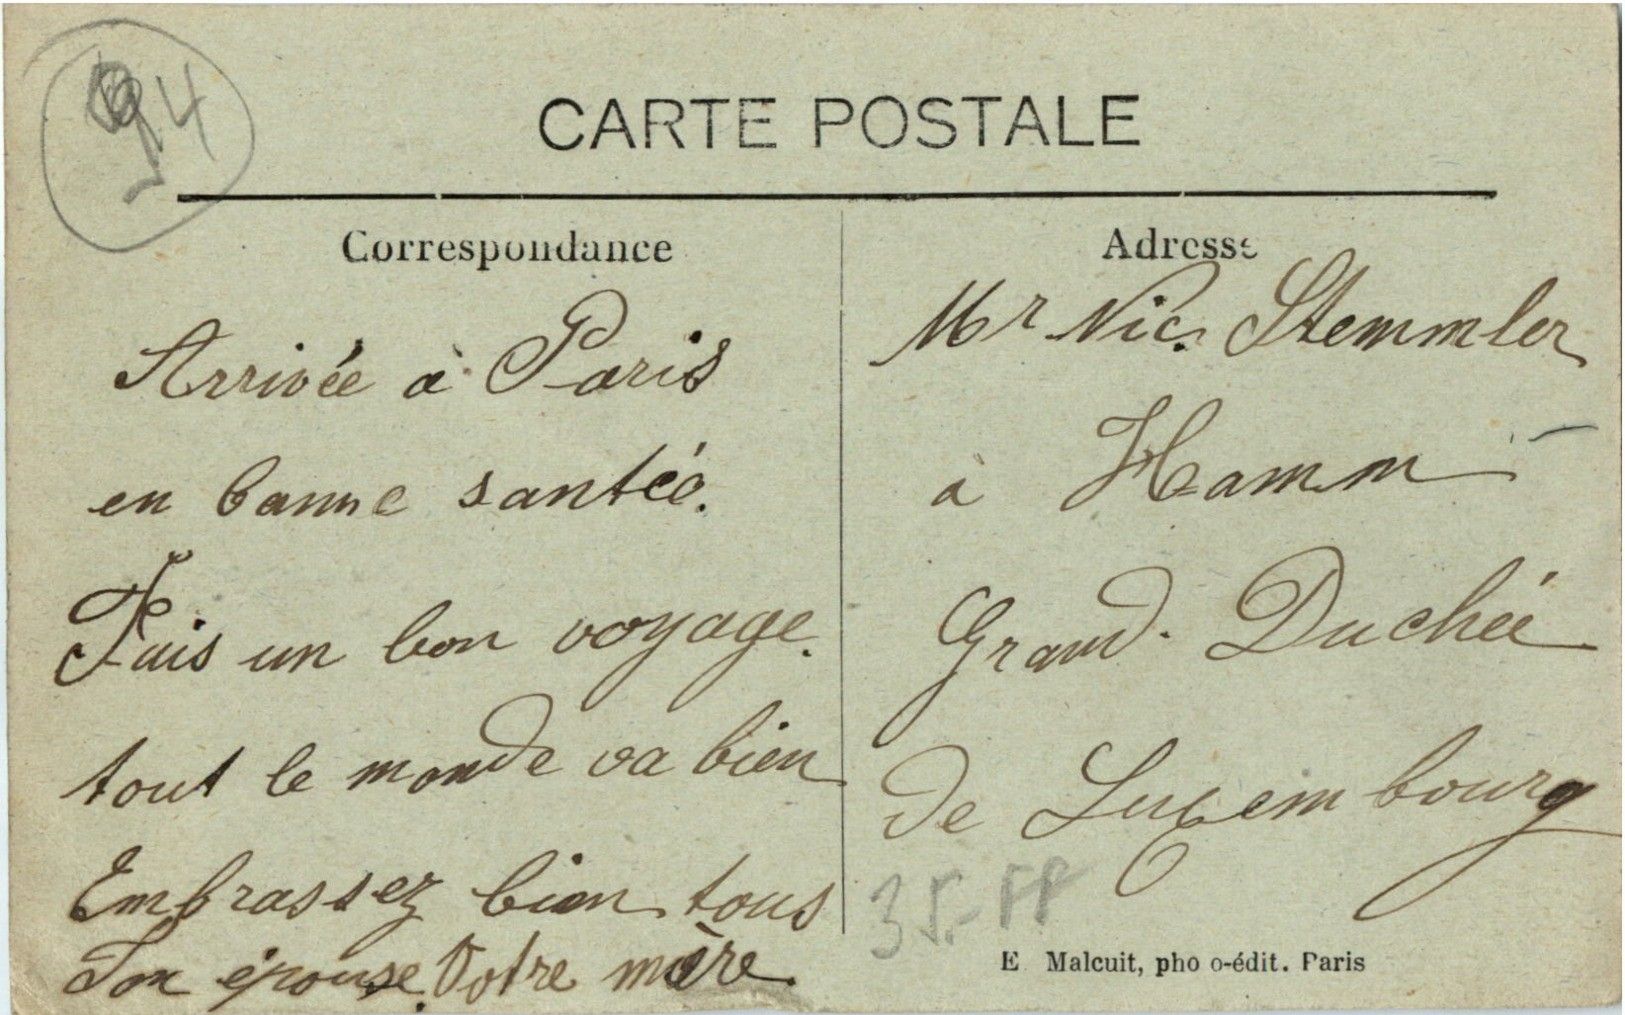 94
CARTE POSTALE
Correspondance
Arrivée à Paris
en bonne santée.
Fais un bon voyage.
tout le monde va bien
Embrassez bien tous
Ton épouse. Votre mère.
Adresse
Mr Nic. Stemmler
à Hamm
Grand-Duchée
de Luxembourg
35.- FF
E Malcuit, pho o-édit. Paris